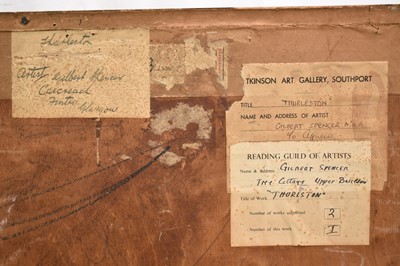 Thurleston
Artist Gilbert Spencer
Fintry
Glasgow
TKINSON ART GALLERY, SOUTHPORT
TITLE "THURLESTON"
NAME AND ADDRESS OF ARTIST
GILBERT SPENCER
READING GUILD OF ARTISTS
Name & Address GILBERT SPENCER
The Cottage Upper Basildon
Title of Work "THURLSTON"
Number of works submitted 3
Number of this work I